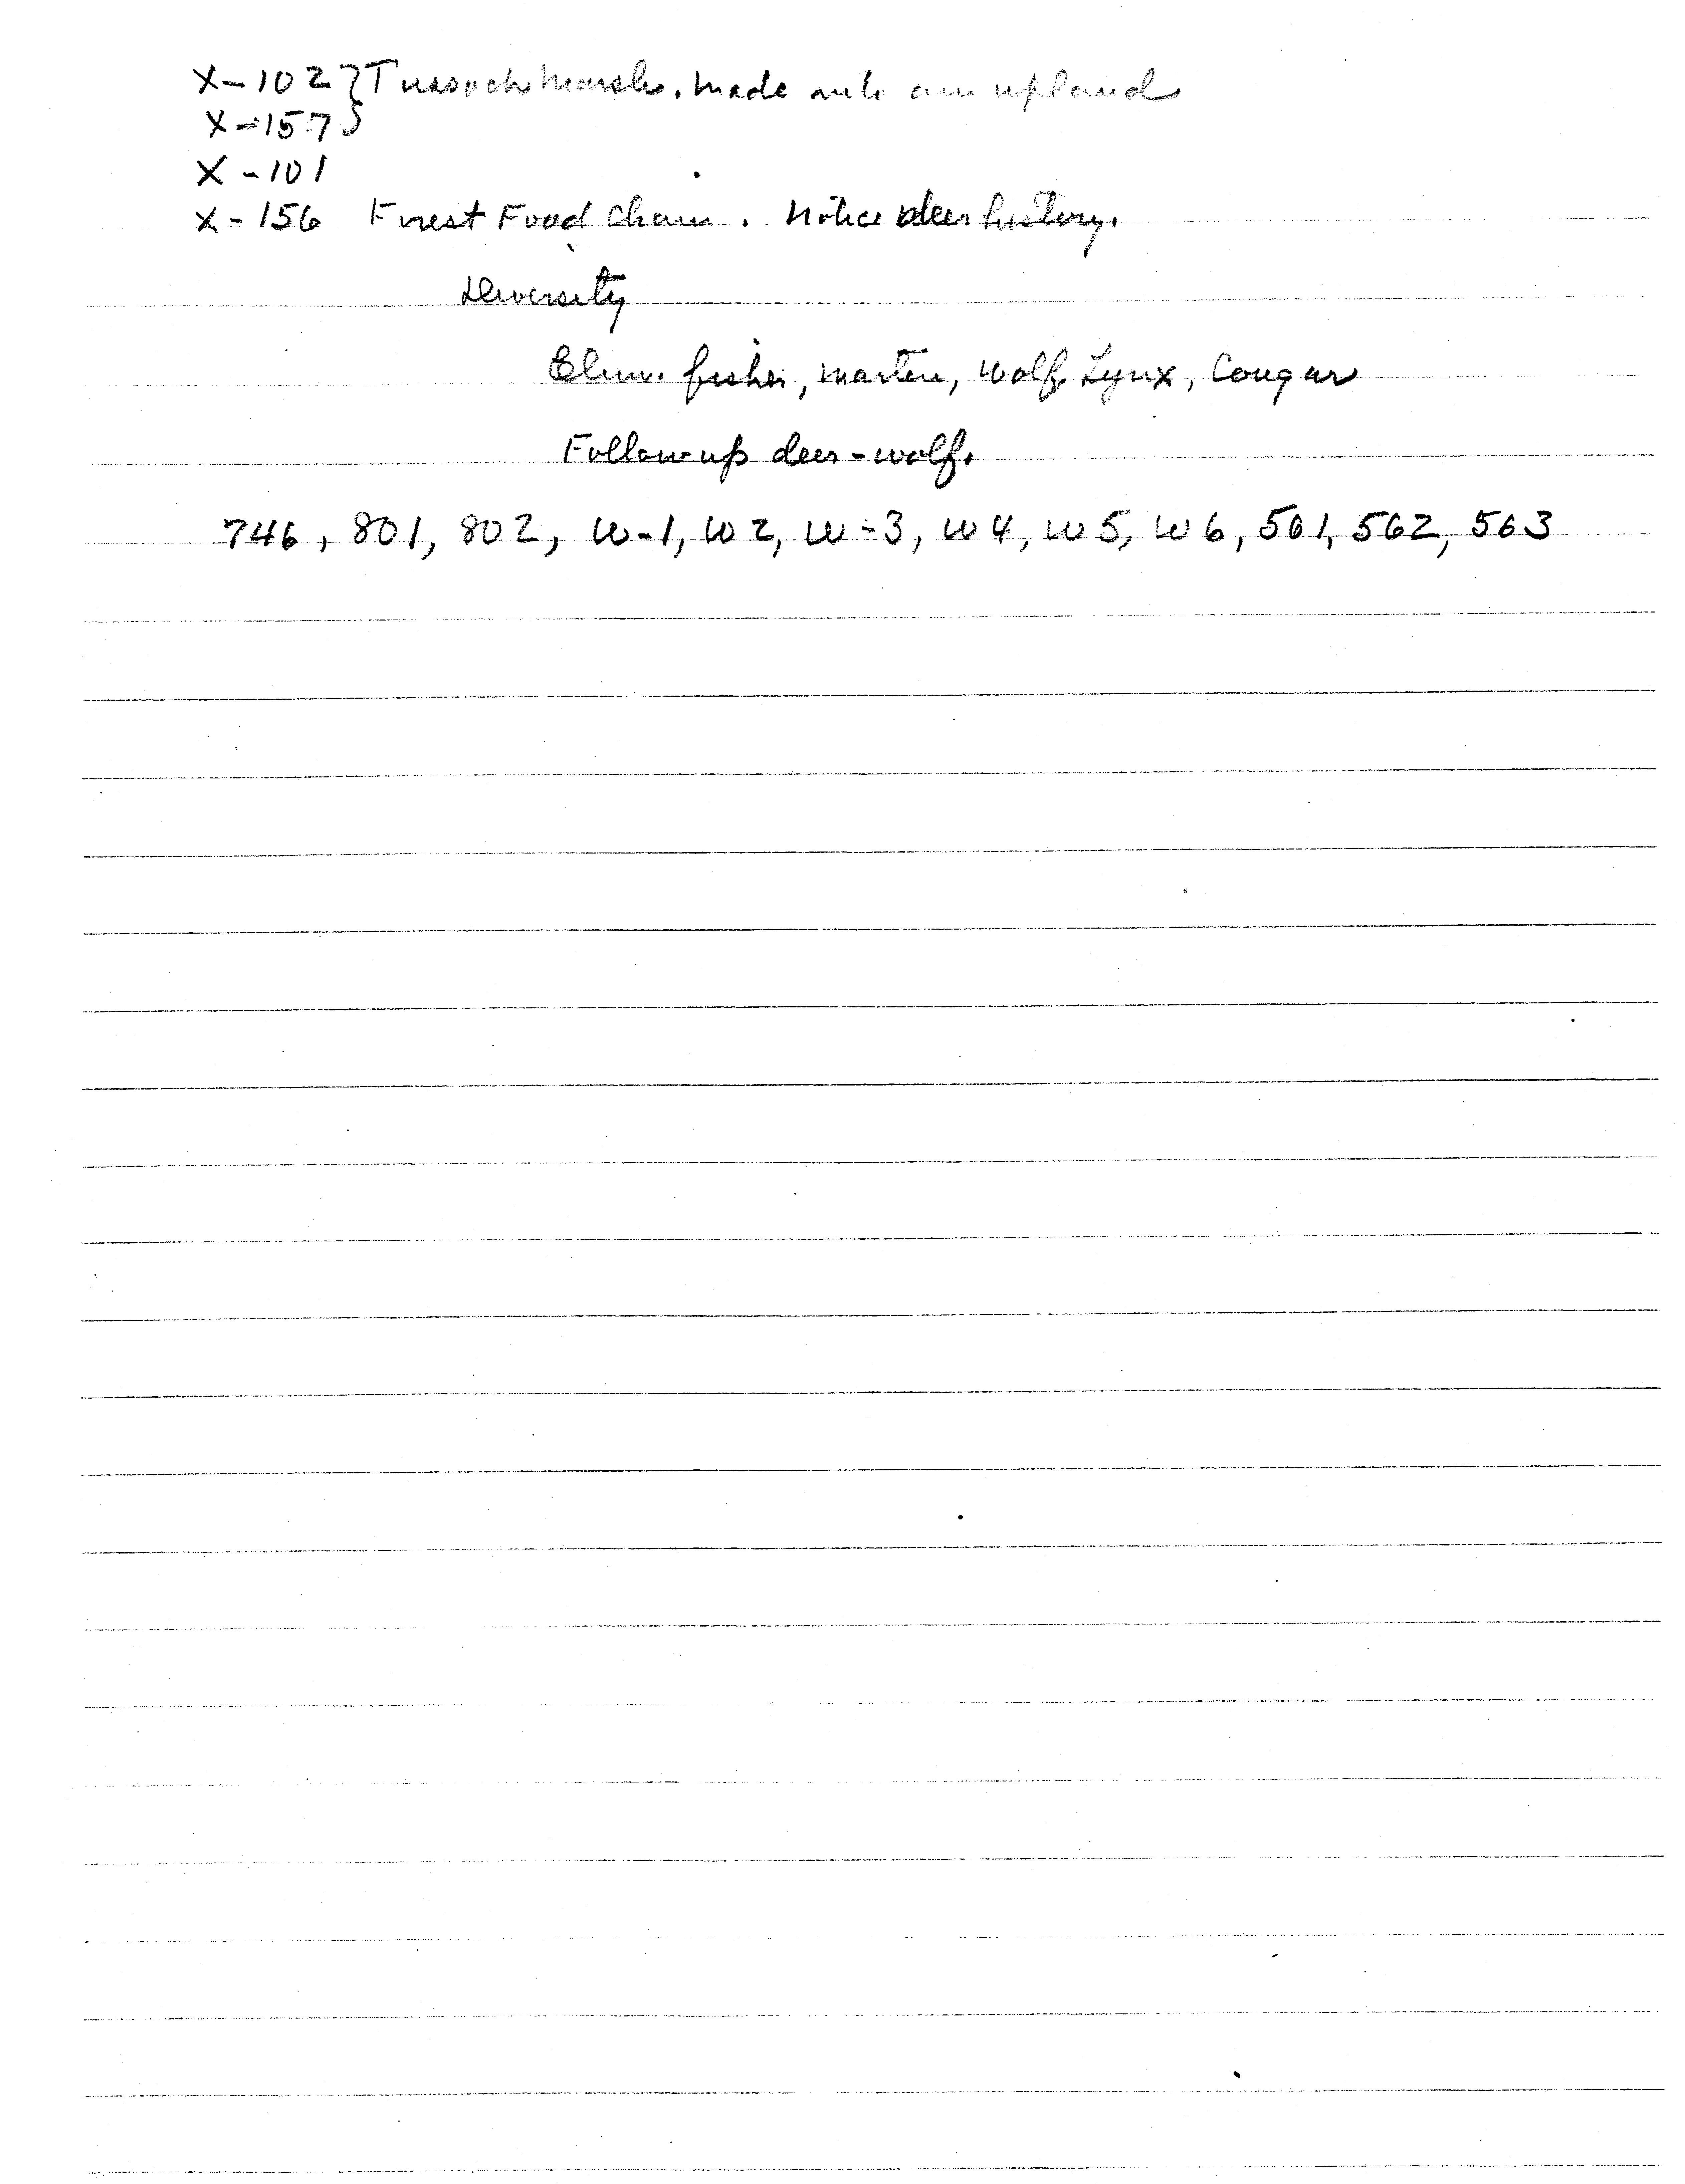 X-102 } Tussock Marsh. Made into an upland
X-157 }
X-101
X-156 Forest Food Chain. Notice deer history.
Diversity
Elim. fisher, marten, wolf, Lynx, Cougar
Follow-up deer-wolf.
746, 801, 802, W-1, W2, W-3, W4, W5, W6, 561, 562, 563